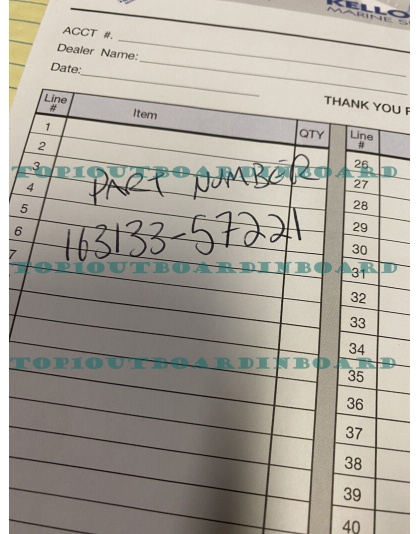 KELLO
MARINE S
ACCT #.
Dealer Name:
Date:
THANK YOU F
Line #
Item
QTY
Line #
1
2
3
4
5
6
7
26
27
28
29
30
31
32
33
34
35
36
37
38
39
40
PART NUMBER
163133-57221
TOP1OUTBOARDINBOARD
TOP1OUTBOARDINBOARD
TOP1OUTBOARDINBOARD